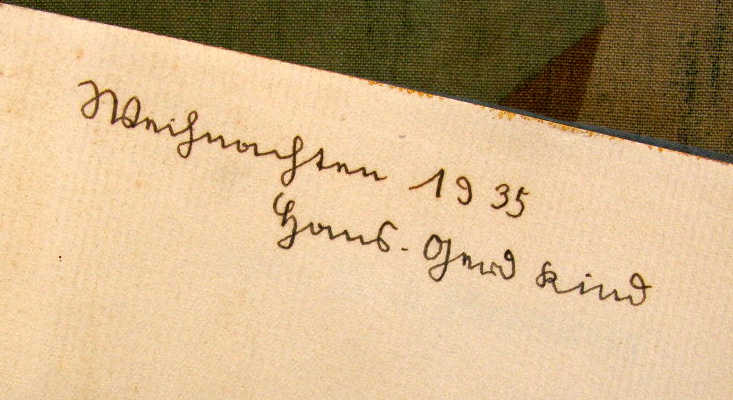 Weihnachten 1935
Hans-Gerd Kind